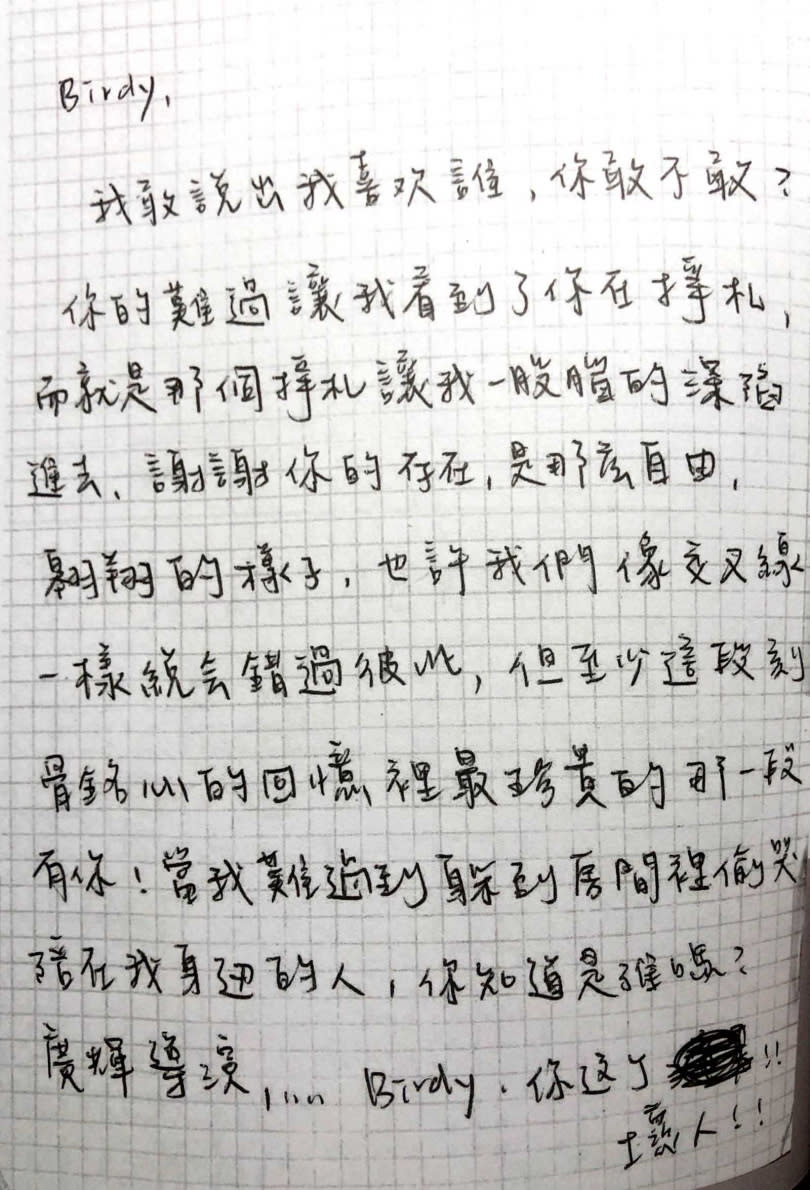 Birdy,
我敢說出我喜欢誰，你敢不敢？
你的難過讓我看到了你在掙札，
而就是那個掙札讓我一股腦的深陷
進去、謝謝你的存在，是那麼自由，
翱翔的樣子，也許我們像交叉線
一樣總会錯過彼此，但至少這段刻
骨銘心的回憶裡最珍貴的那一段
有你！當我難過到躲到房間裡偷哭
陪在我身边的人，你知道是誰嗎？
廣輝導演，.... Birdy．你这个!!
壞人！！